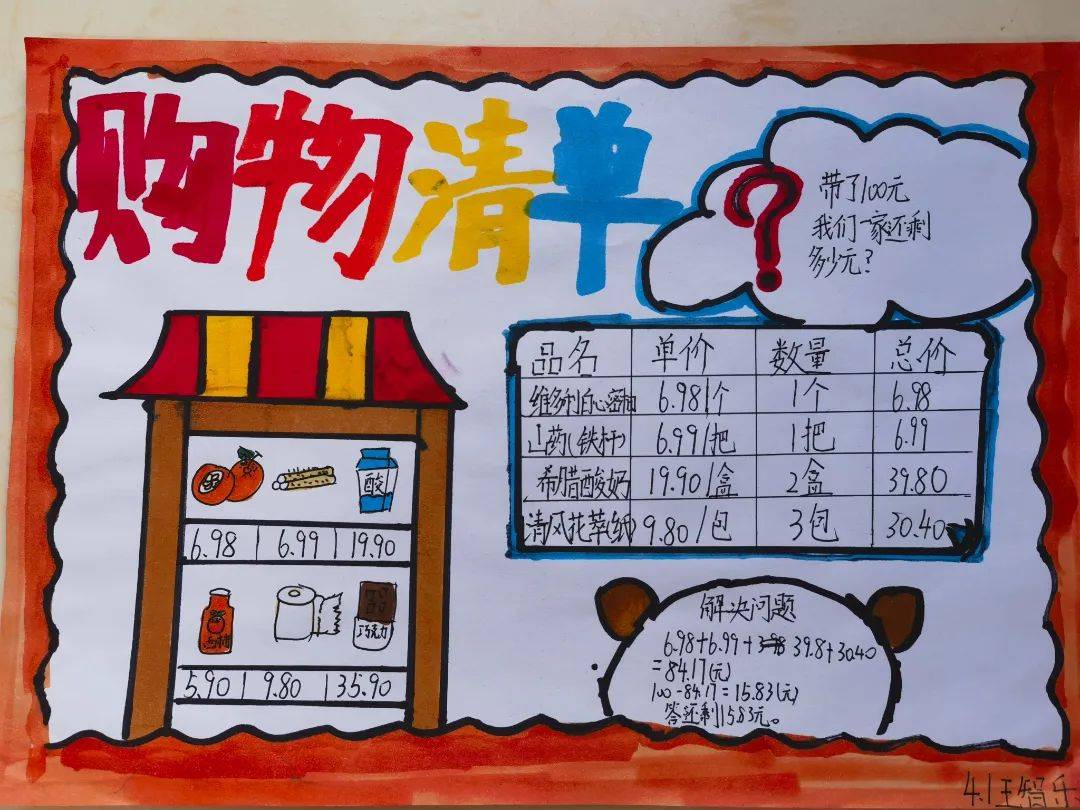 购物清单
?
带了100元
我们一家还剩
多少元?
品名 单价 数量 总价
维多利白心蜜柚 6.98/个 1个 6.98
山药(铁杆) 6.99/把 1把 6.99
希腊酸奶 19.90/盒 2盒 39.80
清风花萃(纸) 9.80/包 3包 30.40
酸
6.98 6.99 19.90
巧克力
5.90 9.80 35.90
解决问题
6.98+6.99+ 39.8+30.40
=84.17(元)
100-84.17=15.83(元)
答还剩15.83元。
4.1王智乐